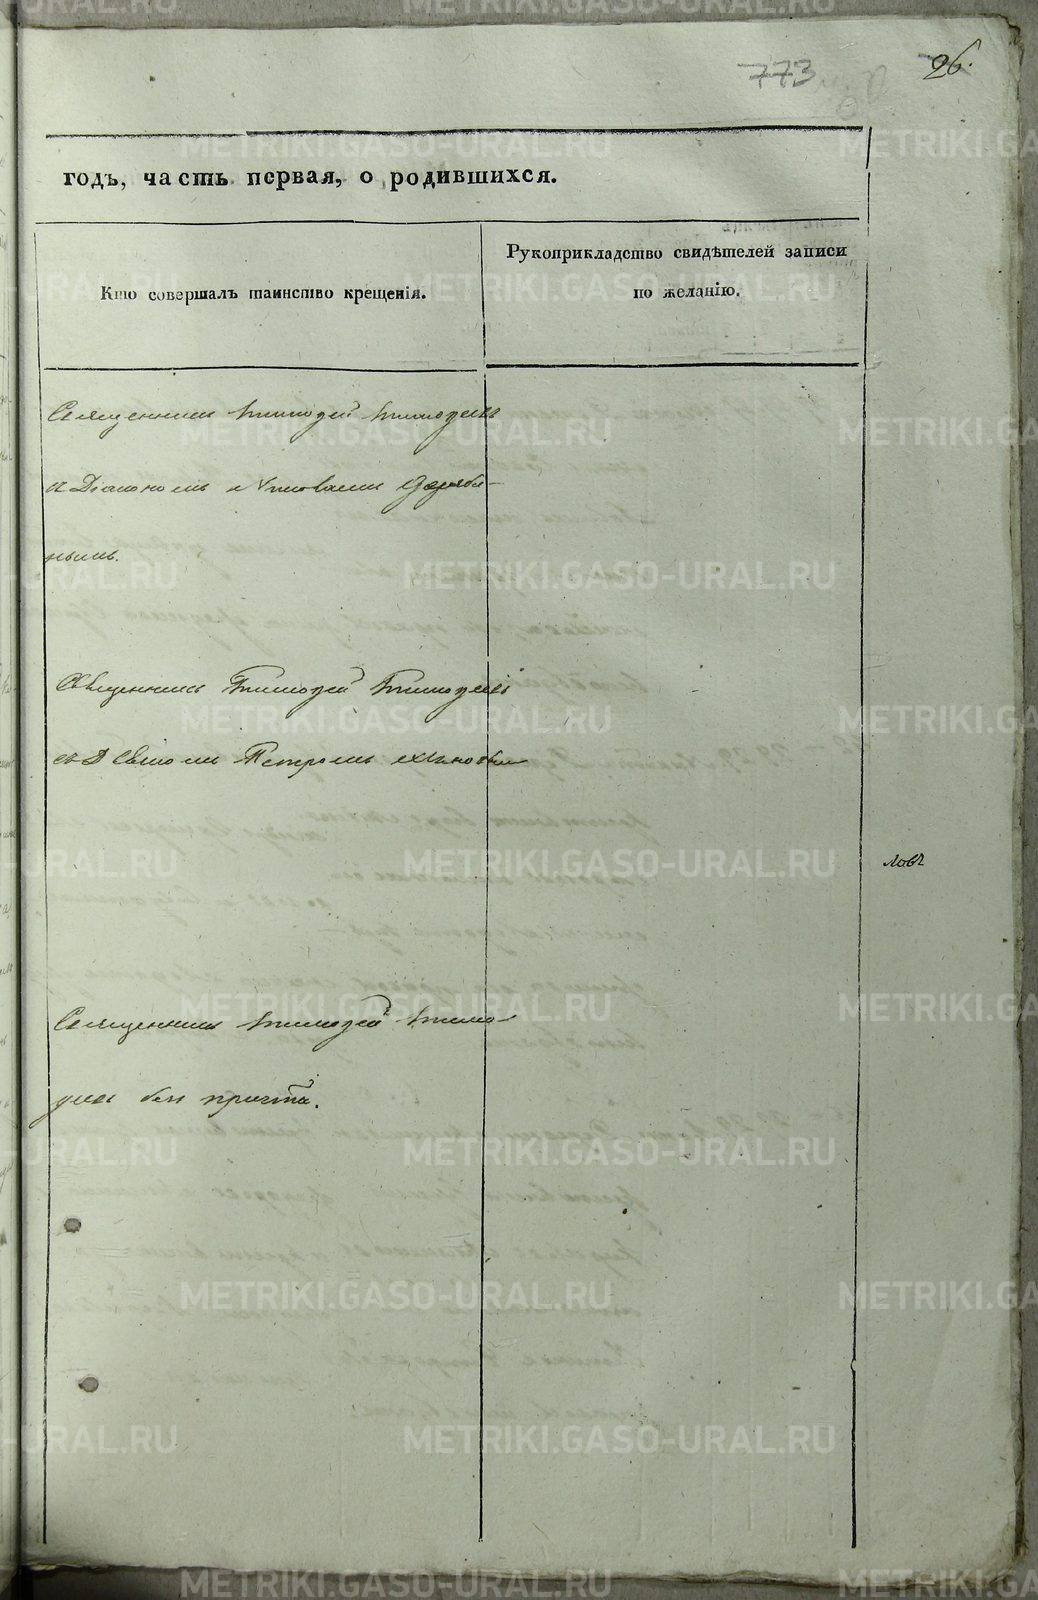 773
26.
годъ, часть первая, о родившихся.
Кто совершалъ таинство крещенія.
Рукоприкладство свидѣтелей записи
по желанію.
Священникъ Тимофей Тимофеевъ
съ Діакономъ
нымъ.
Священникъ Тимофей Тимофеевъ
съ Петромъ
ловъ
Священникъ Тимофей Тимо-
феевъ безъ причта.
METRIKI.GASO-URAL.RU